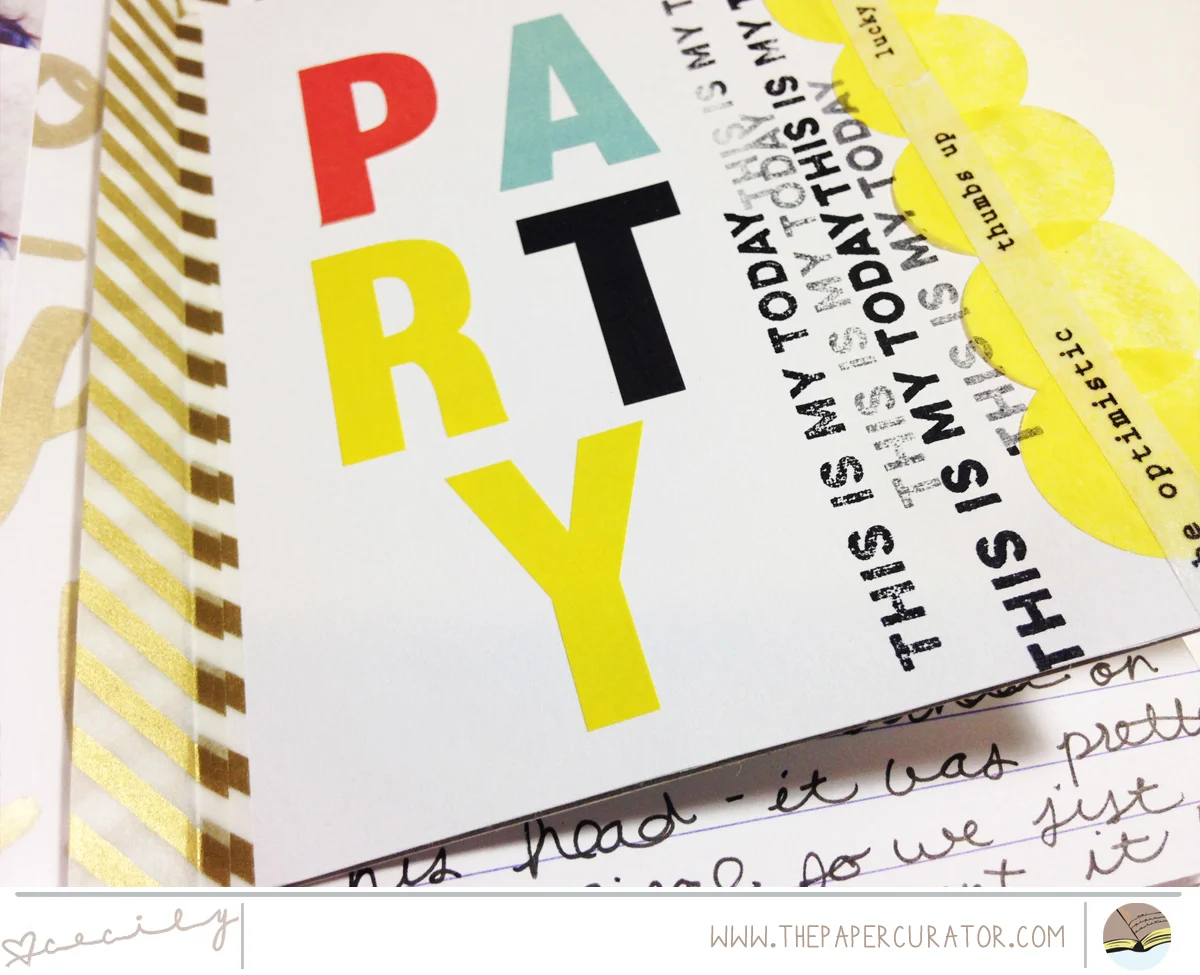 PARTY
THIS IS MY TODAY THIS IS MY T
THIS IS MY TODAY
THIS IS MY TODAY
THIS IS MY TODAY THIS IS MY T
THIS IS MY TODAY
THIS IS
THIS IS MY T
lucky
thumbs up
optimistic
on
his head - it was
so we just
it
cecily
WWW.THEPAPERCURATOR.COM